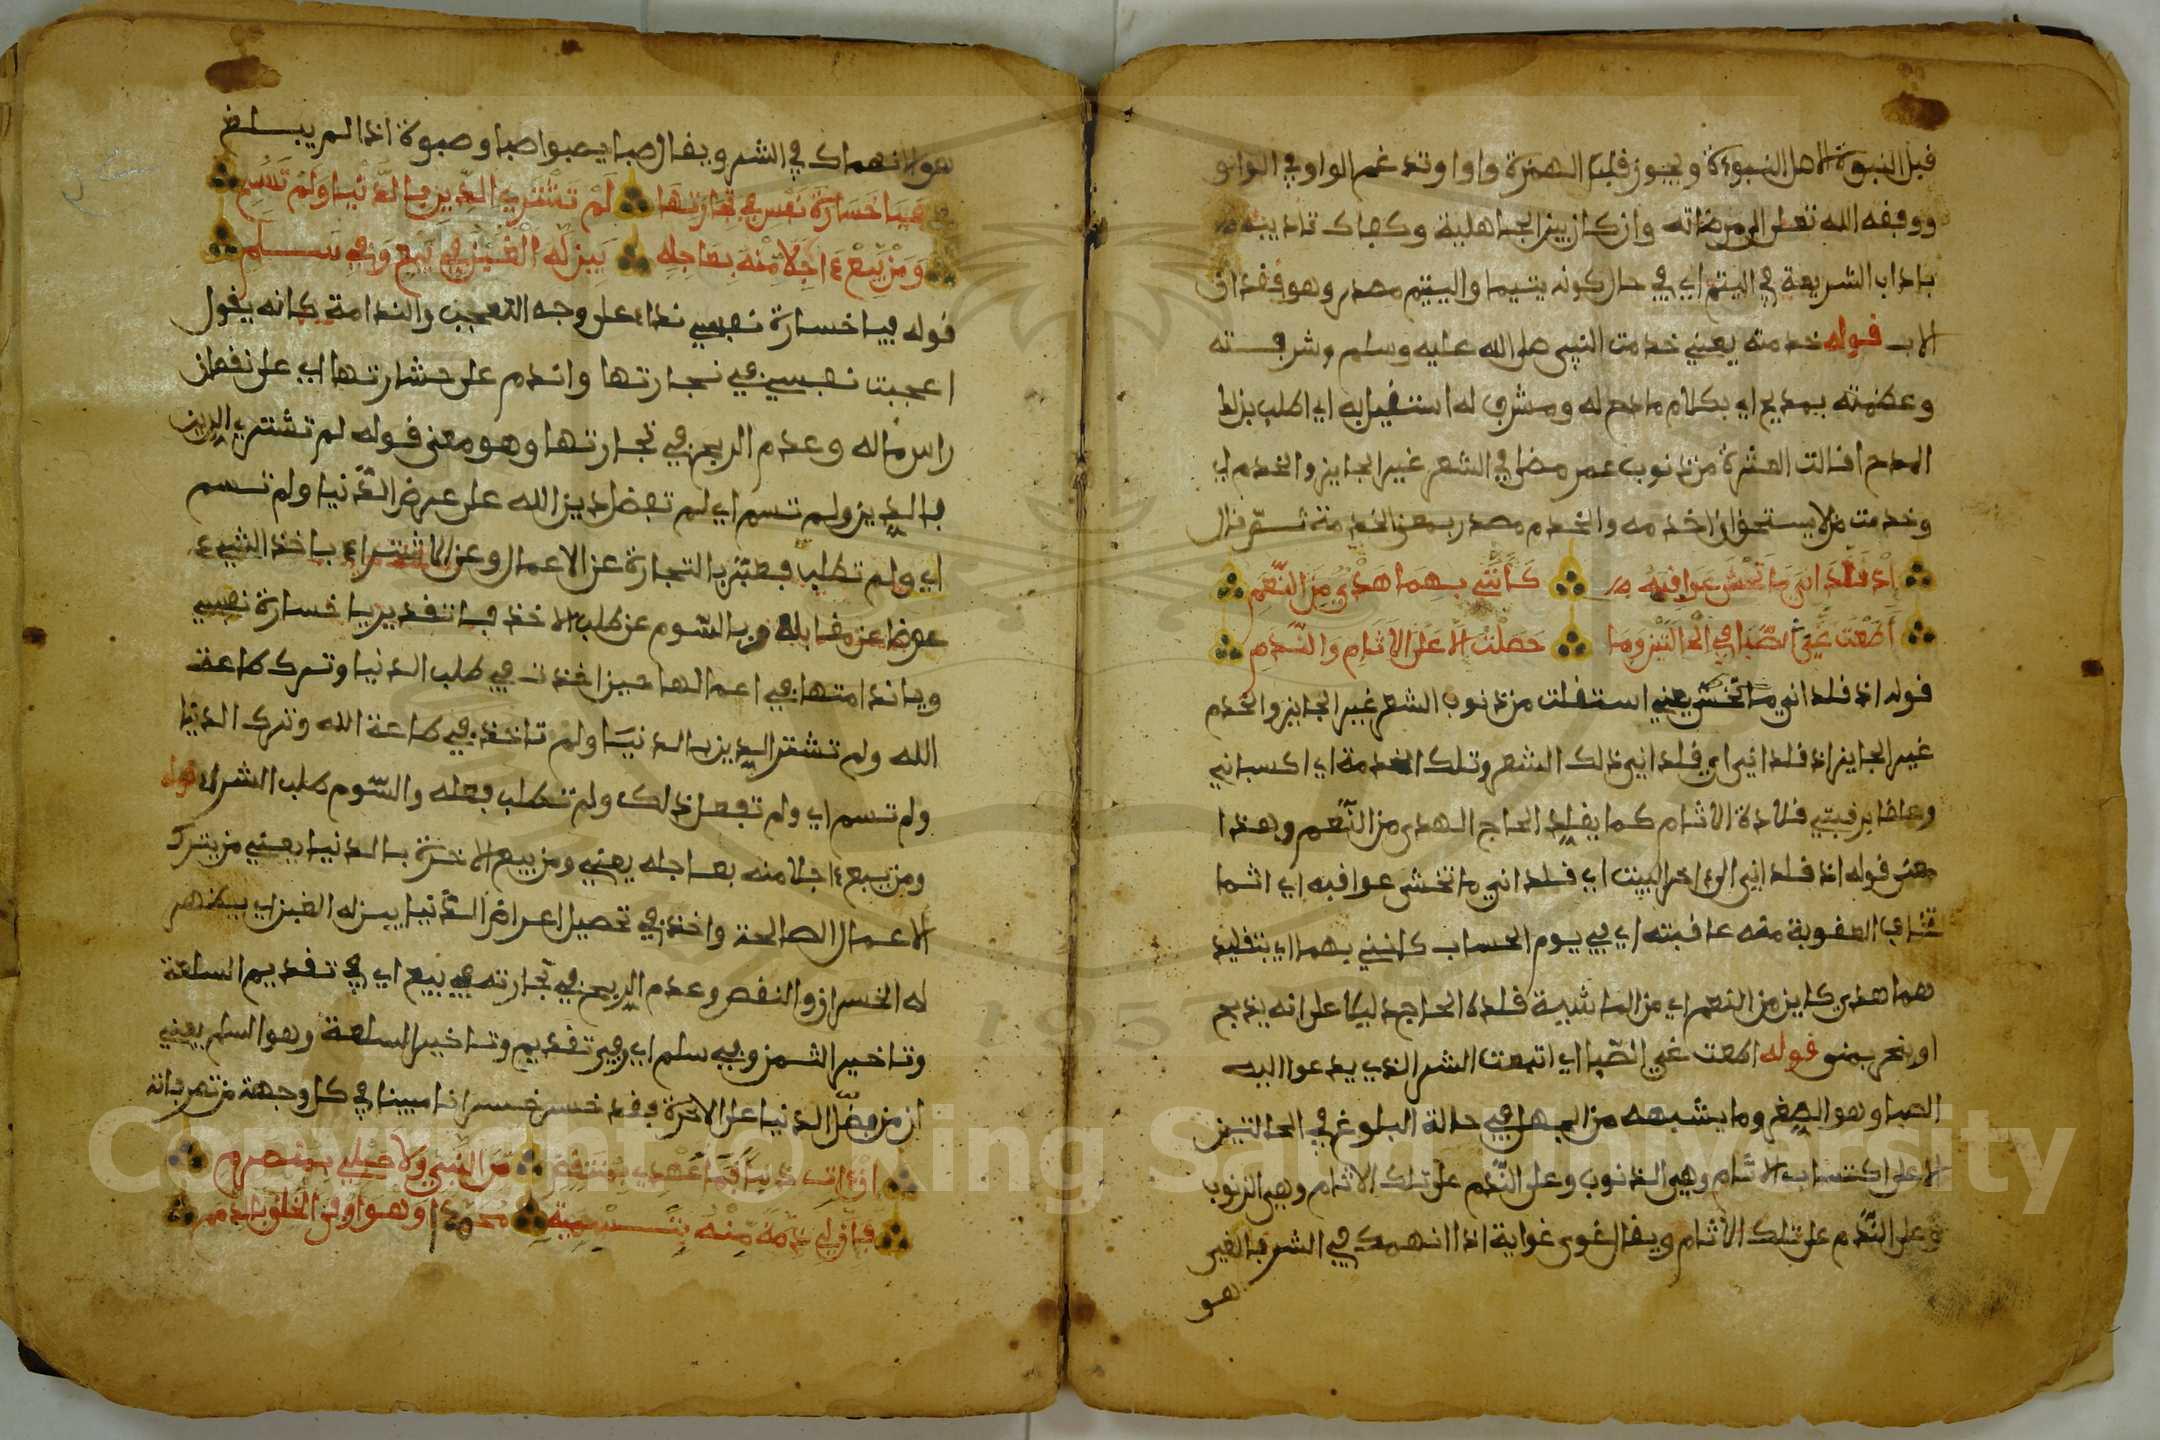 قبل النبوة الاصل النبوءة ويجوز قلب الهمزة واوا وتدغم الواو في الواو
ووفقه الله تعلى الى مرضاته وان كان بين الجاهلية وكفاك تاديبه
باداب الشريعة في اليتم اي في حال كونه يتيما واليتم مصدر وهو فقدان
الاب قوله خدمته يعني خدمت النبي صلى الله عليه وسلم وشرفته
وعظمته بمديح اي بكلام مادح له ومشرف له استقيل به اي اطلب بذلك
المدح اقالت العثرة من ذنوب عمر مضى في الشعر غير الجايز والخدم اي
وخدمت من لا يستحق ان اخدمه والخدم مصدر بمعنى الخدمة ثم قال
إذ قلداني ما تخشى عواقبه كأنني بهما هدي من النعم
أطعت غي الصبا في الحالتين وما حصلت الا على الآثام والندم
قوله اذ قلداني ما تخشى يعني استقلت من ذنوب الشعر غير الجايز والخدم
غير الجايز اذ قلداني اي قلداني ذلك الشعر وتلك الخدمة اي اكسباني
وعلقا برقبتي قلادة الاثام كما يقلد الحاج الهدي من النعم وهذا
معنى قوله اذ قلداني الى ءاخر البيت اي قلداني ما تخشى عواقبه اي اثما
تخاف العقوبة منه عاقبته اي في يوم الحساب كانني بهما اي بتقليد
هما هدي كاين من النعم اي من الماشية قلده الحاج دليلا على انه يذبح
او ينحر بمنى قوله اطعت غي الصبا اي اتبعت الشر الذي يدعوا اليه
الصبا وهو الصغر وما يشبهه من الجهل في حالة البلوغ في الحالتين
الا على اكتساب الاثام وهي الذنوب وعلى الندم على تلك الاثام وهي الذنوب
وعلى الندم على تلك الاثام ويقال غوى غواية اذا انهمك في الشر فالغي
هو
هو الانهماك في الشر ويقال صبا يصبوا صبا وصبوة اذا لم يبلغ
فيا خسارة نفس في تجارتها لم تشتر الدين بالدنيا ولم تسم
ومن يبع ءاجلا منه بعاجله يبن له الغبن في بيع وفي سلم
قوله فيا خسارة نفسي نداء على وجه التعجب والندامة كانه يقول
اعجبت نفسي في تجارتها واندم على خسارتها اي على نقصان
راس ماله وعدم الربح في تجارتها وهو معنى قوله لم تشتر الدين
بالدين ولم تسم اي لم تفضل دين الله على عرض الدنيا ولم تسم
اي ولم تطلب فعبر بالتجارة عن الاعمال وعن الاشتراء باخذ الشيء
عوضا عن مقابله وبالسوم عن طلب الاخذ فاتقدير يا خسارة نفسي
ويا ندامتها في اعمالها حين اخذت في طلب الدنيا وترك طاعة
الله ولم تشتر الدين بالدنيا ولم تاخذ في طاعة الله وترك الدنيا
ولم تسم اي ولم تفعل ذلك ولم تطلب فعله والسوم طلب الشراء قوله
ومن يبع ءاجلا منه بعاجله يعني ومن يبيع الاخرة بالدنيا يعني من يترك
الاعمال الصالحة واخذ في تحصيل اعراض الدنيا يبن له الغبن اي يظهر
له الخسران والنقص وعدم الربح في تجارته في بيع اي في تقديم السلعة
وتاخير الثمن وفي سلم اي وفي تقديم وتاخير السلعة وهو السلم يعني
ان من فضل الدنيا على الاخرة فقد خسر خسرانا مبينا في كل وجهة من تصرفاته
إن ءات ذنبا فما عهدي بمنتقض من النبي ولا حبلي بمنصرم
فإن لي ذمة منه بتسميتي محمدا وهو اوفى الخلق بالذمم